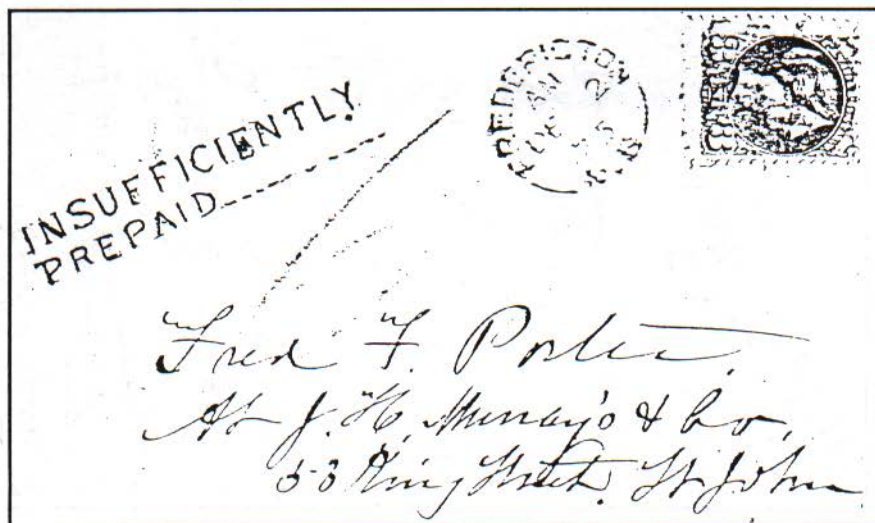 INSUFFICIENTLY
PREPAID
FREDERICTON
AM
DE 2
Fred F. Porter
At J. H. Murray's & Co,
53 King Street. St John